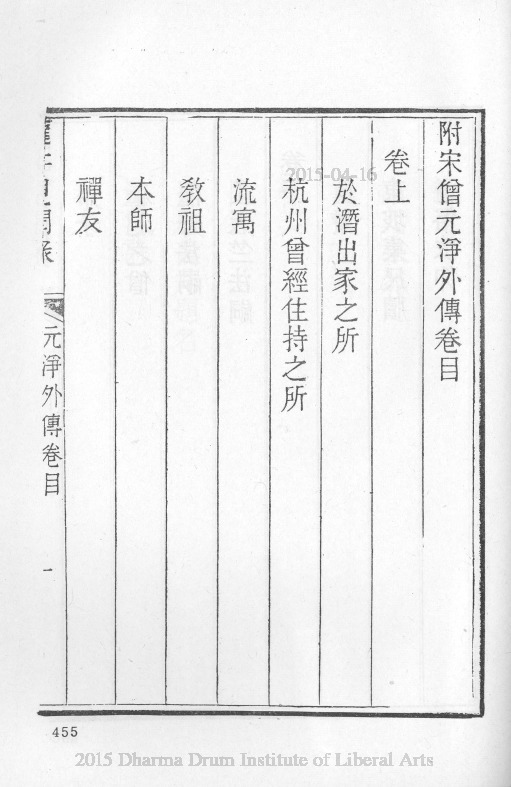 附宋僧元淨外傳卷目
卷上
於潛出家之所
杭州曾經住持之所
流寓
教祖
本師
禪友
龍井見聞錄
元淨外傳卷目
一
2015-04-16
455
2015 Dharma Drum Institute of Liberal Arts